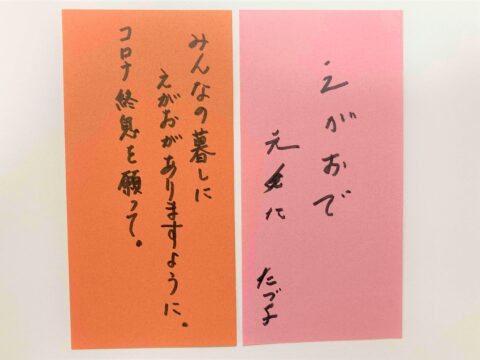 みんなの暮しに
えがおがありますように。
コロナ終息を願って。
えがおで
元気に
たづよ